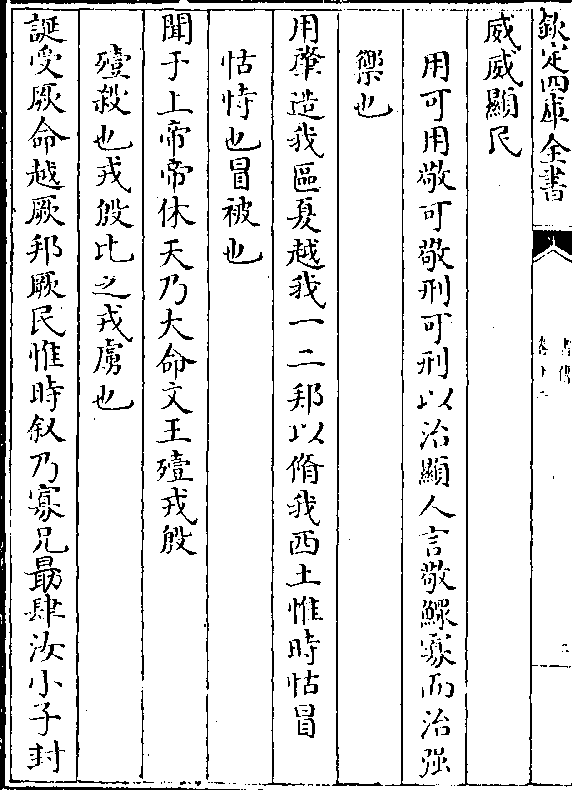 欽定四庫全書
威威顯民
用可用敬可敬刑可刑以治顯人言敬鰥寡而治强
禦也
用肇造我區夏越我一二邦以脩我西土惟時怙冒
怙恃也冒被也
聞于上帝帝休天乃大命文王殪戎殷
殪殺也戎殷比之戎虜也
誕受厥命越厥邦厥民惟時叙乃寡兄朂肆汝小子封